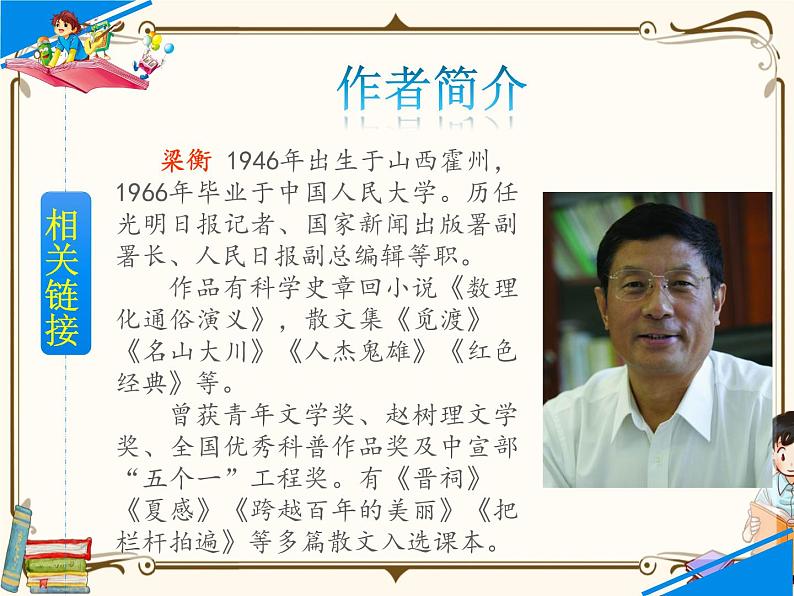 作者简介
相关链接
梁衡 1946年出生于山西霍州，
1966年毕业于中国人民大学。历任
光明日报记者、国家新闻出版署副
署长、人民日报副总编辑等职。
作品有科学史章回小说《数理
化通俗演义》，散文集《觅渡》
《名山大川》《人杰鬼雄》《红色
经典》等。
曾获青年文学奖、赵树理文学
奖、全国优秀科普作品奖及中宣部
“五个一”工程奖。有《晋祠》
《夏感》《跨越百年的美丽》《把
栏杆拍遍》等多篇散文入选课本。